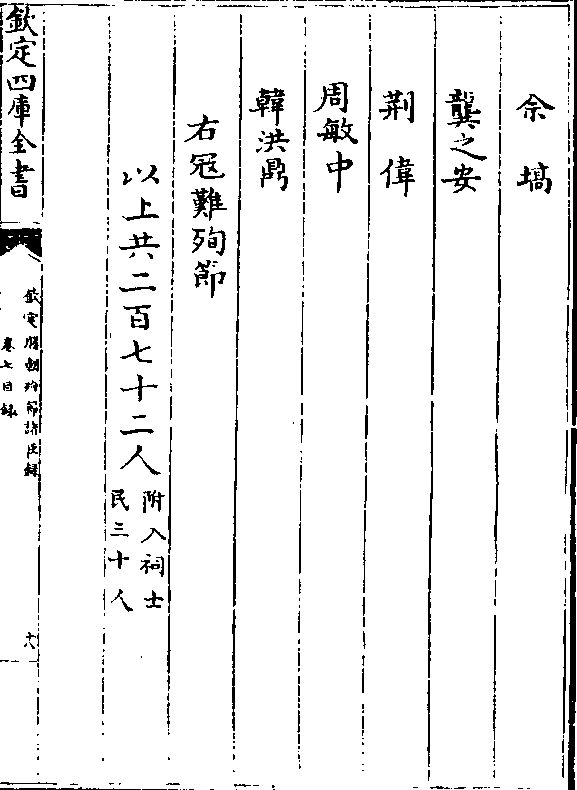 佘塙
龔之安
荆偉
周敏中
韓洪鼎
右冦難殉節
以上共二百七十二人
附入祠士
民三十人
欽定四庫全書
欽定勝朝殉節諸臣録
卷七目録